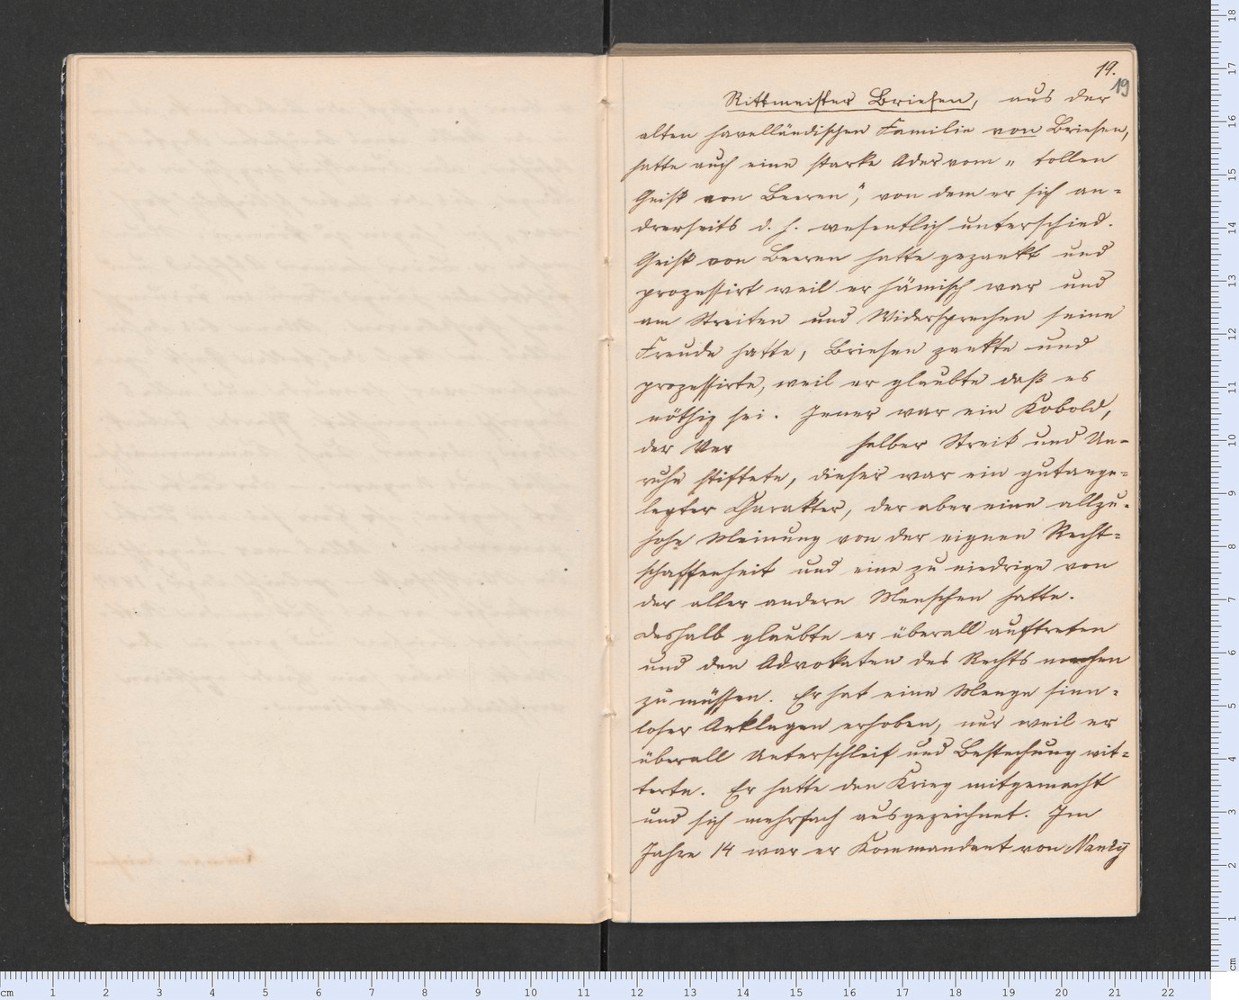 19.
19
Rittmeister Briesen, aus der
alten havelländischen Familie von Briesen,
hatte auch eine starke Ader vom „ tollen
Geist von Beeren“, von dem er sich an-
drerseits d. h. wesentlich unterschied.
Geist von Beeren hatte gezankt und
prozessirt weil er hämisch war und
am Streiten und Widersprechen seine
Freude hatte, Briesen zankte und
prozessirte, weil er glaubte daß es
nöthig sei. Jener war ein Kobold,
der Ver halber Streit und Un-
ruhe stiftete, dieser war ein gutange-
legter Charakter, der aber eine allzu-
hohe Meinung von der eignen Recht-
schaffenheit und eine zu niedrige von
der aller andern Menschen hatte.
Deshalb glaubte er überall auftreten
und den Advokaten des Rechts machen
zu müssen. Er hat eine Menge sinn-
loser Anklagen erhoben, nur weil er
überall Unterschleif und Bestechung wit-
terte. Er hatte den Krieg mitgemacht
und sich mehrfach ausgezeichnet. Im
Jahre 14 war er Kommandant von Nancy